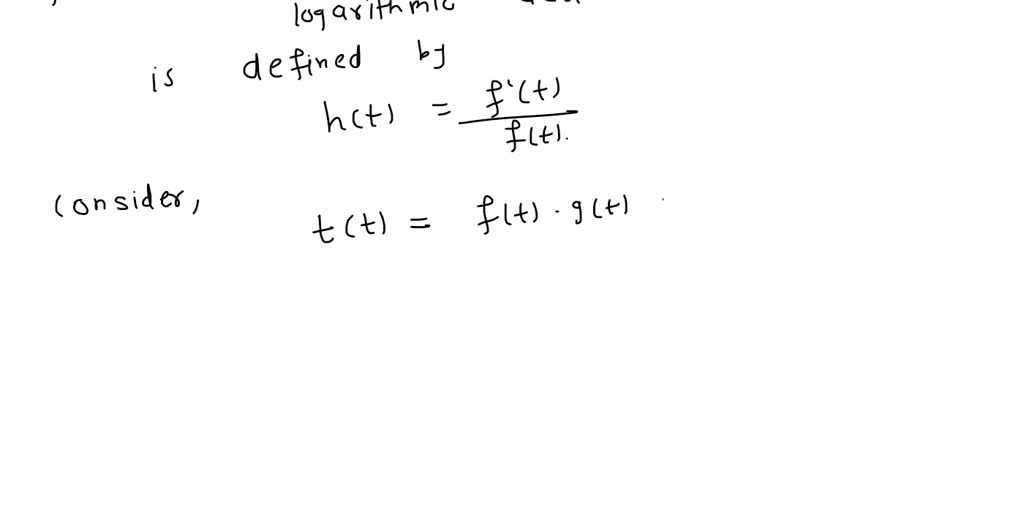 logarithmic
is defined by
h(t) = f'(t) / f(t).
Consider,
t(t) = f(t) · g(t)